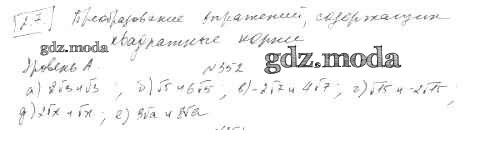 2.7 Преобразование выражений, содержащих
квадратные корни
gdz.moda
gdz.moda
Уровень А. №352
а) 8√3 и √3 ; б) √5 и 6√5 ; в) -2√7 и 4√7 ; г) √15 и -2√15 ;
д) 2√x и √x ; е) 3√a и 8√a